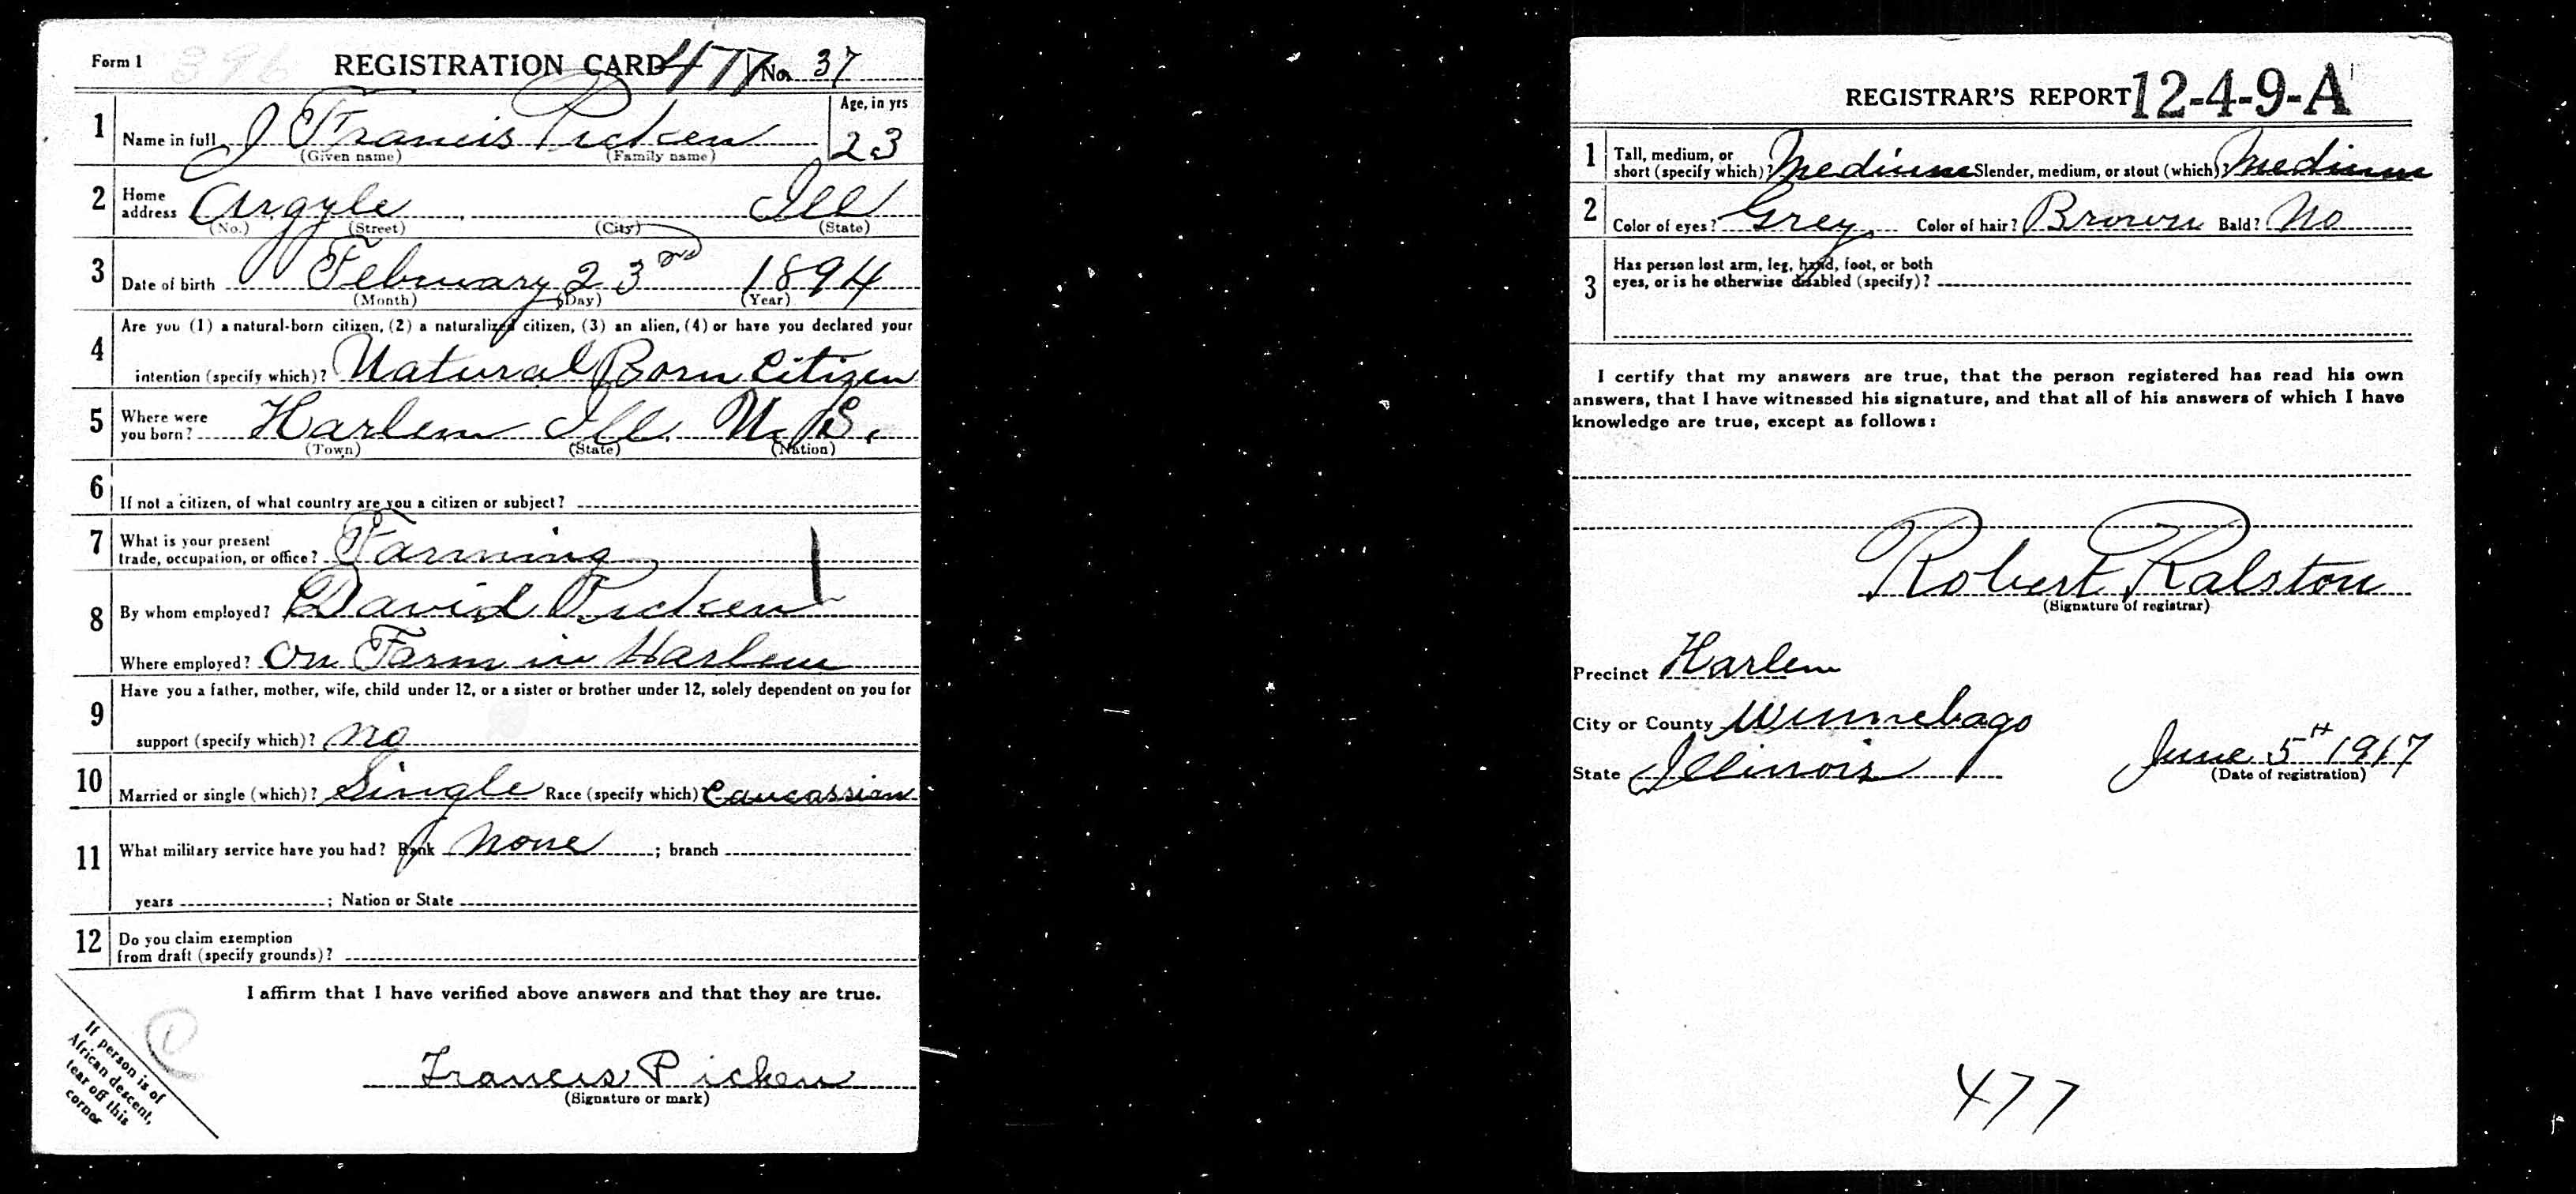 Form 1 396 REGISTRATION CARD 477 No. 37
1 Name in full J Francis Picken Age, in yrs
(Given name) (Family name) 23
2 Home address Argyle Ill
(No.) (Street) (City) (State)
3 Date of birth February 23rd 1894
(Month) (Day) (Year)
4 Are you (1) a natural-born citizen, (2) a naturalized citizen, (3) an alien, (4) or have you declared your
intention (specify which)? Natural Born Citizen
5 Where were you born? Harlem Ill. U.S.
(Town) (State) (Nation)
6 If not a citizen, of what country are you a citizen or subject?
7 What is your present
trade, occupation, or office? Farming
8 By whom employed? David Picken
Where employed? On Farm in Harlem
9 Have you a father, mother, wife, child under 12, or a sister or brother under 12, solely dependent on you for
support (specify which)? no
10 Married or single (which)? Single Race (specify which) Caucassian
11 What military service have you had? Rank none ; branch
years ; Nation or State
12 Do you claim exemption
from draft (specify grounds)?
I affirm that I have verified above answers and that they are true.
Francis Picken
(Signature or mark)
1
If person is of
African descent,
tear off this
corner
REGISTRAR'S REPORT 12-4-9-A
1 Tall, medium, or
short (specify which)? Medium Slender, medium, or stout (which)? Medium
2 Color of eyes? Grey Color of hair? Brown Bald? No
3 Has person lost arm, leg, hand, foot, or both
eyes, or is he otherwise disabled (specify)?
I certify that my answers are true, that the person registered has read his own
answers, that I have witnessed his signature, and that all of his answers of which I have
knowledge are true, except as follows:
Robert Ralston
(Signature of registrar)
Precinct Harlem
City or County Winnebago
State Illinois June 5th 1917
(Date of registration)
477